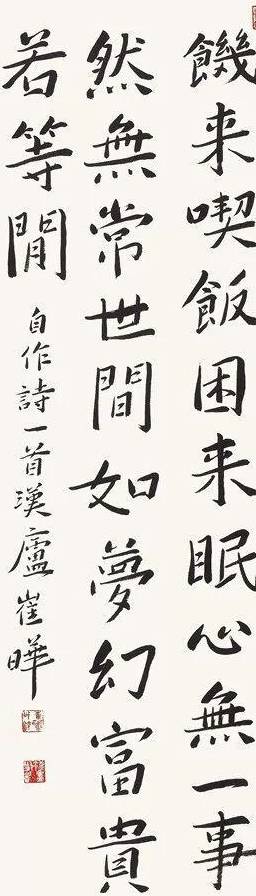 饑来喫飯困来眠心無一事
然無常世間如夢幻富貴
若等閒
自作詩一首漢廬崔曄